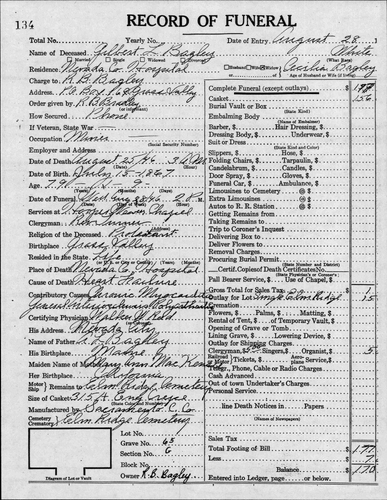 134
RECORD OF FUNERAL
Total No. Yearly No. Date of Entry August 28
Name of Deceased Gilbert L Bagley White
Married Single Widowed Divorced (What Race)
Residence Nevada Co. Hospital Husband Widow of Cecilia Bagley
Charge to R B Bagley
Address P.O. Box 768 Grass Valley
Order given by R B Bagley
How Secured Phone
If Veteran, State War
Occupation Miner
(Social Security Number)
Employer and Address
Date of Death August 25/46
Date of Birth July 15-1867
Age 79
Date of Funeral Wed Aug 28/46 2 P.M.
Services at Hooper Weaver Chapel
Clergyman
Religion of the Deceased Protestant
Birthplace Grass Valley
Resided in the State Life
Place of Death Nevada Co. Hospital
Cause of Death Heart Failure
Contributory Causes Chronic Myocarditis
Certifying Physician Walker W Reed
His Address Nevada City
Name of Father G L Bagley
His Birthplace Maine
Maiden Name of Mother Mary Ann MacKenzie
Her Birthplace California
Motor Ship Remains to Elm Ridge Cemetery
Size of Casket 6/3 ft Gray Crepe
Manufactured by Sacramento C. Co.
Cemetery Crematory Elm Ridge Cemetery
Lot No.
Grave No. 65
Section No. 6
Block No.
Owner R.B. Bagley
Diagram of Lot or Vault
Complete Funeral (except outlays) $
Casket 156
Burial Vault or Box
(State Kind)
Embalming Body
Barber, $ Hair Dressing, $
Dressing Body, $ Underwear, $
Suit or Dress
(State Kind and Color)
Slippers, $ Hose, $
Folding Chairs, $ Tarpaulin, $
Candelabrum, $ Candles, $
Door Spray, $ Gloves, $
Funeral Car, $ Ambulance, $
Limousines to Cemetery @
Extra Limousines @
Autos to R. R. Station @
Getting Remains from
Taking Remains to
Trip to Coroner's Inquest
Delivering Box to
Deliver Flowers to
Removal Charges
Procuring Burial Permit
(State Number and District)
Certif. Copies of Death Certificates
Pall Bearer Service, $ Use of Chapel, $
Gross Total for Sales Tax 1
Outlay for Single Elm Ridge 15
Cremation
Flowers, $ Palms, $ Matting, $
Rental of Tent, $ of Temporary Vault, $
Opening of Grave or Tomb
Lining Grave, $ Lowering Device, $
Outlay for Shipping Charges
Clergyman, $ Singers, $ Organist, $ 5
Telegr., Phone, Cable or Radio Charges
Cash Advanced
Out of town Undertaker's Charges
Personal Service
line Death Notices in Papers
Sales Tax
Total Footing of Bill $ 177
Less 7
Balance $ 170
Entered into Ledger, page or below.